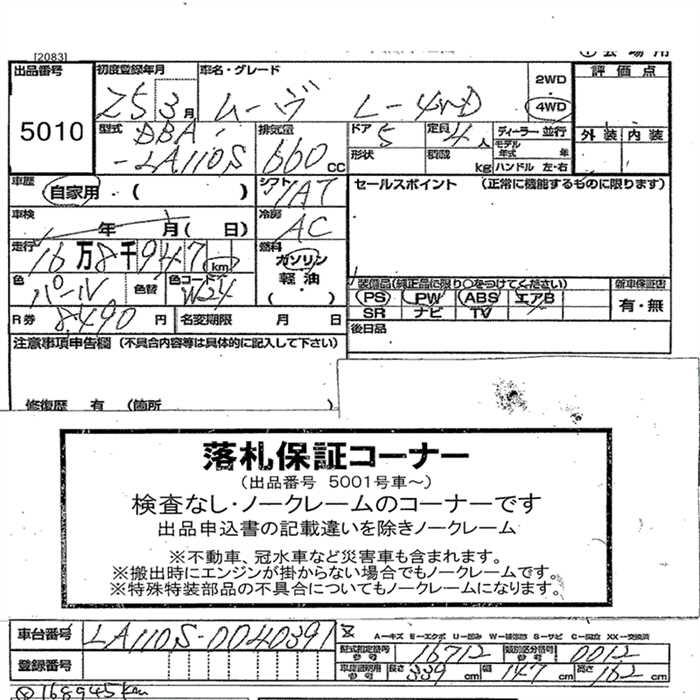 [2083]
出品番号 5010
初度登録年月 25 3月
車名・グレード ムーヴ L-4WD
2WD
4WD
評価点
外装 内装
型式 DBA-LA110S
排気量 660 CC
ドア 5
定員 4 人
形状
積載 kg
ディーラー・並行
モデル年式 年
ハンドル 左・右
車歴 自家用・( )
シフト IAT
セールスポイント (正常に機能するものに限ります)
車検 年 月( 日)
冷房 AC
走行 16万8千947 km
燃料 ガソリン
軽油
( ・ )
色 パール 色替
色コード W24
装備品(純正品に限り○をつけてください)
PS PW ABS エアB
SR ナビ TV
新車保証書
有・無
R券 8,490 円
名変期限 月 日
後日品
注意事項申告欄 (不具合内容等は具体的に記入して下さい)
修復歴 有 (箇所
落札保証コーナー
(出品番号 5001号車～)
検査なし・ノークレームのコーナーです
出品申込書の記載違いを除きノークレーム
※不動車、冠水車など災害車も含まれます。
※搬出時にエンジンが掛からない場合でもノークレームです。
※特殊特装部品の不具合についてもノークレームになります。
車台番号 LA110S-0040391
A-キズ E-エクボ U-凹み W-補修跡 S-サビ C-腐食 XX-交換済
型式指定番号 参考 16712
類別区分番号 参考 0012
登録番号
車庫証明用 参考 長さ 339 cm 幅 147 cm 高さ 162 cm
168945km